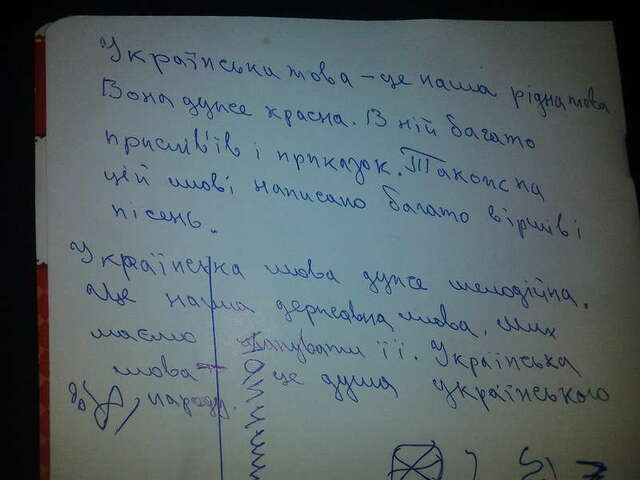 Українська мова – це наша рідна мова.
Вона дуже красна. В ній багато
прислів'їв і приказок. Також на
цій мові написано багато віршів і
пісень.
Українська мова дуже мелодійна.
Це наша державна мова. Ми
маємо цінувати її. Українська
мова – це душа українського
народу.